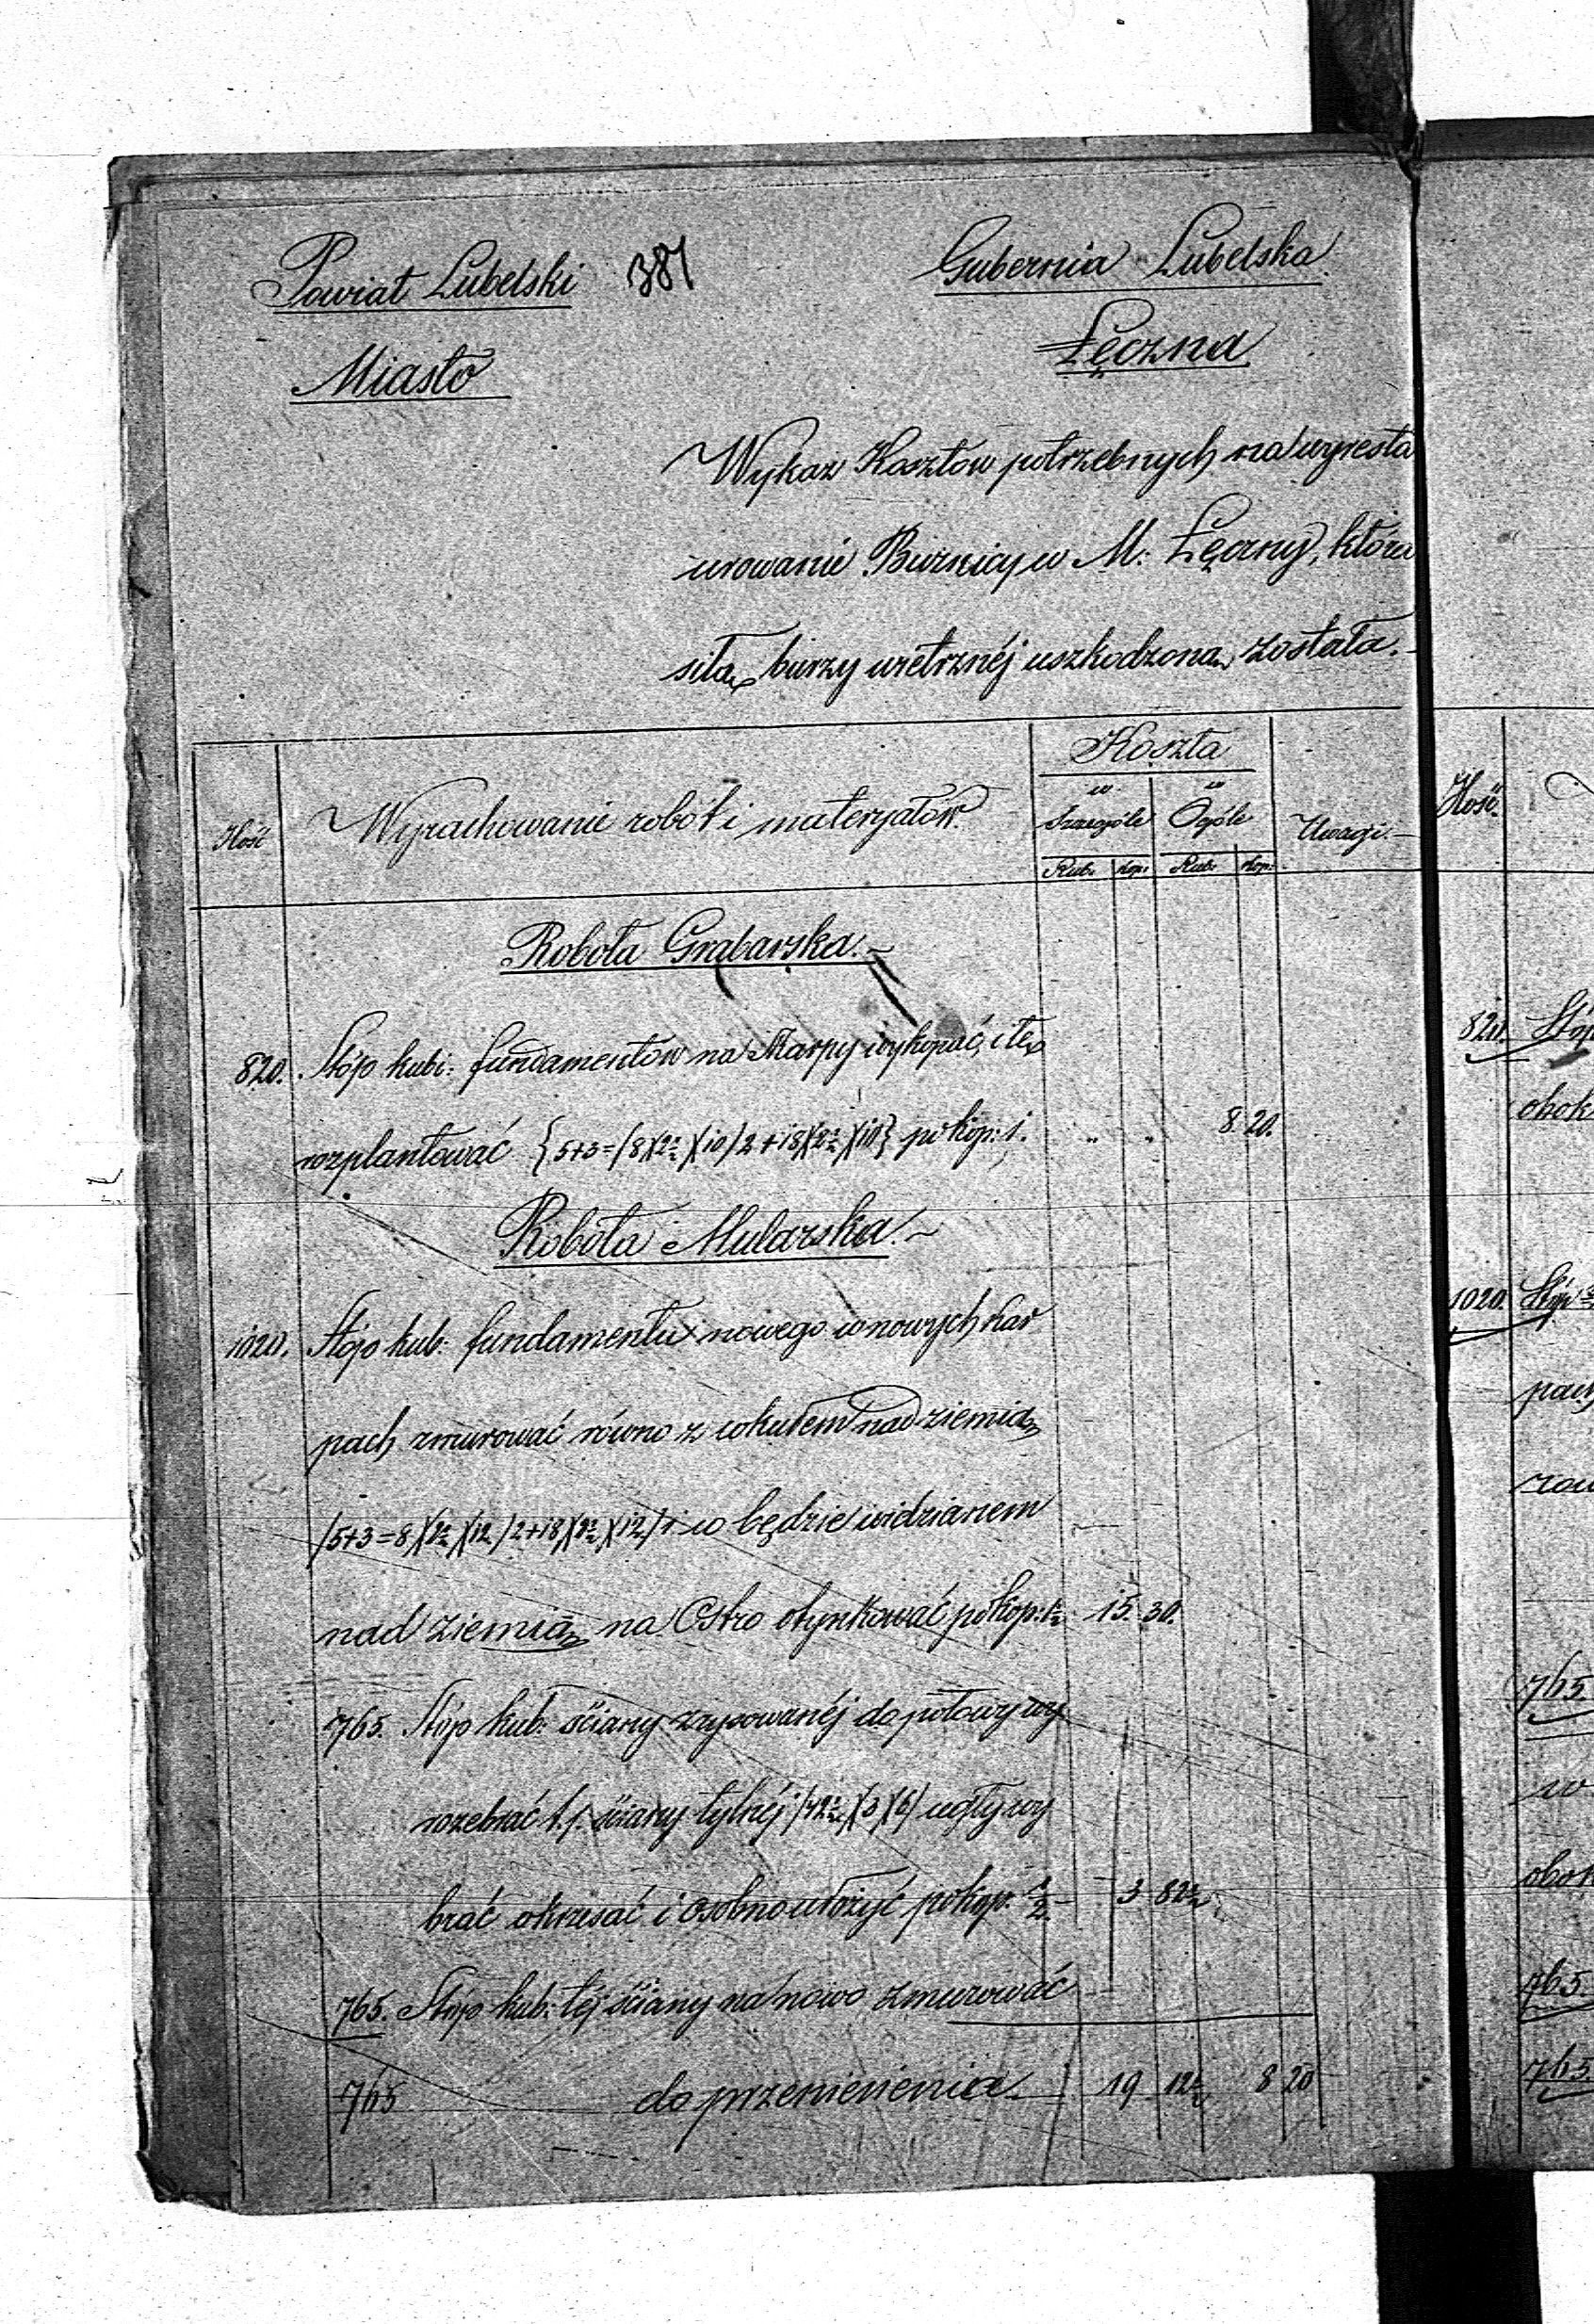 Powiat Lubelski 381 Gubernia Lubelska.
Miasto Łęczna
Wykaz Kosztów potrzebnych na wyresta
urowanie Bóżnicy w M: Łęczny, która
siłą burzy wietrznéj uszkodzona została.
Ilość Wyrachowanie robót i materyałów. Koszta Uwagi.
w Szczególe w Ogóle
Rub: Kop: Rub: Kop:
Robota Grabarska.
820. Stóp kubi: fundamentów na Skarpy wykopać, i tę
rozplantować {5+3=(8)(2½)(10)2+18)(2½)(10} po kop: 1. " " 8 20.
Robota Mularska.
1020. Stóp kub: fundamentu nowego w nowych kar
pach zmurować równo z cokułem nad ziemią
(5+3=8)(2½)(12)2+18)(2½)(12) i co będzie widzianem
nad ziemią na Ostro otynkować po kop: 1½ 15. 30.
765. Stóp kub: ściany zrysowanéj do połowy wy
rozebrać t.j. ściany tylnéj (42½)(3)(6) cegły wy
brać okrzesać i osobno ułożyć po kop: ½ 3 82½
765. Stóp kub: téj ściany na nowo zmurować
765 do przeniesienia 19 12½ 8 20
Ilość
820. Stóp
obok
1020 Stóp
pach
765
w
obok
765.
765.